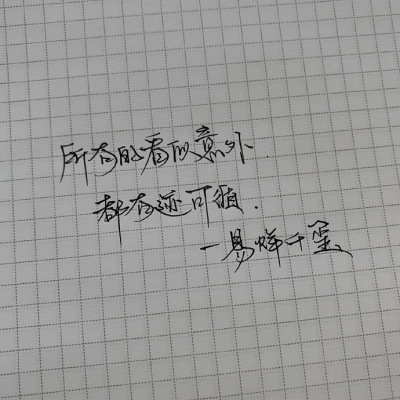 所有的看似意外.
都有迹可循.
一易烊千玺